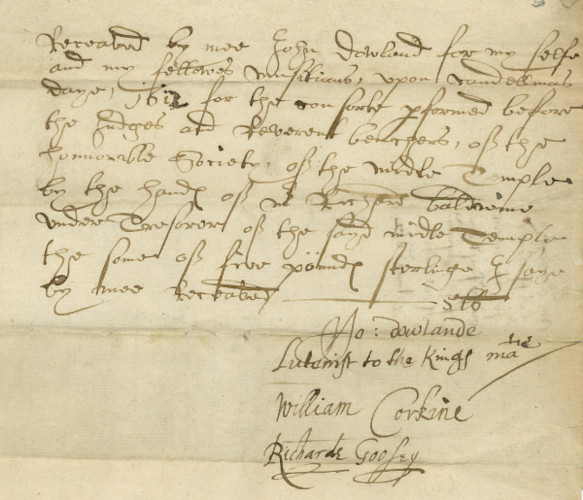 Receaved by mee John Dowland for my selfe
and my fellowes musitians, upon Candellmas
daye, 1612 for the consorte pformed beffore
the Judges and Reverent benchers, off the
honnorible Society, off the midle Temple
by the hand off mr Richard baldwine
under Tresorer off the sayd midle Temple
the some off five pound sterlinge I saye
by mee Receaved 5lb
Jo: dowlande
Lutenist to the Kings matie
William Corkine
Richarde Goosey